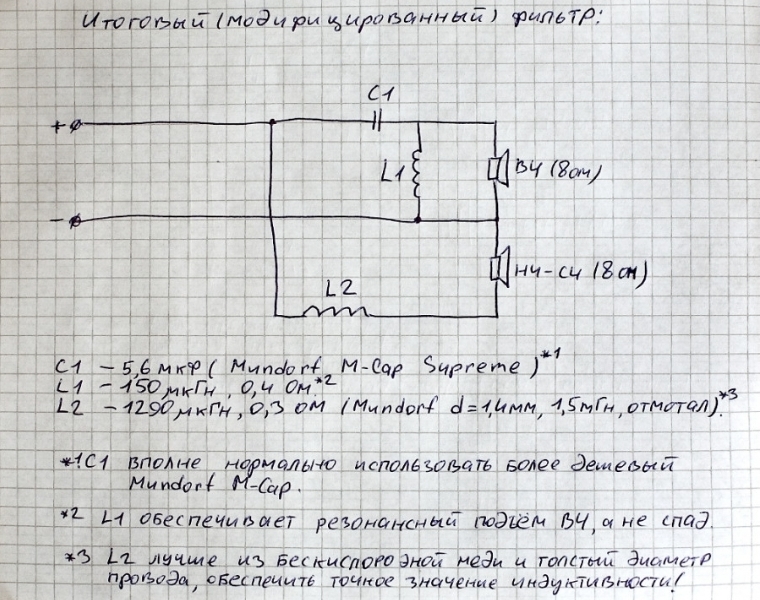 Итоговый (модифицированный) фильтр:
C1
+
L1
ВЧ (8ом)
-
L2
НЧ-СЧ (8ом)
C1 - 5,6 мкФ (Mundorf M-Cap Supreme)*1
L1 - 150 мкГн, 0,4 Ом.*2
L2 - 1290 мкГн, 0,3 ОМ (Mundorf d=1,4мм, 1,5мГн, отмотал).*3
*1C1 вполне нормально использовать более дешевый
Mundorf M-Cap.
*2 L1 обеспечивает резонансный подъём ВЧ, а не спад.
*3 L2 лучше из бескислородной меди и толстый диаметр
провода, обеспечить точное значение индуктивности!